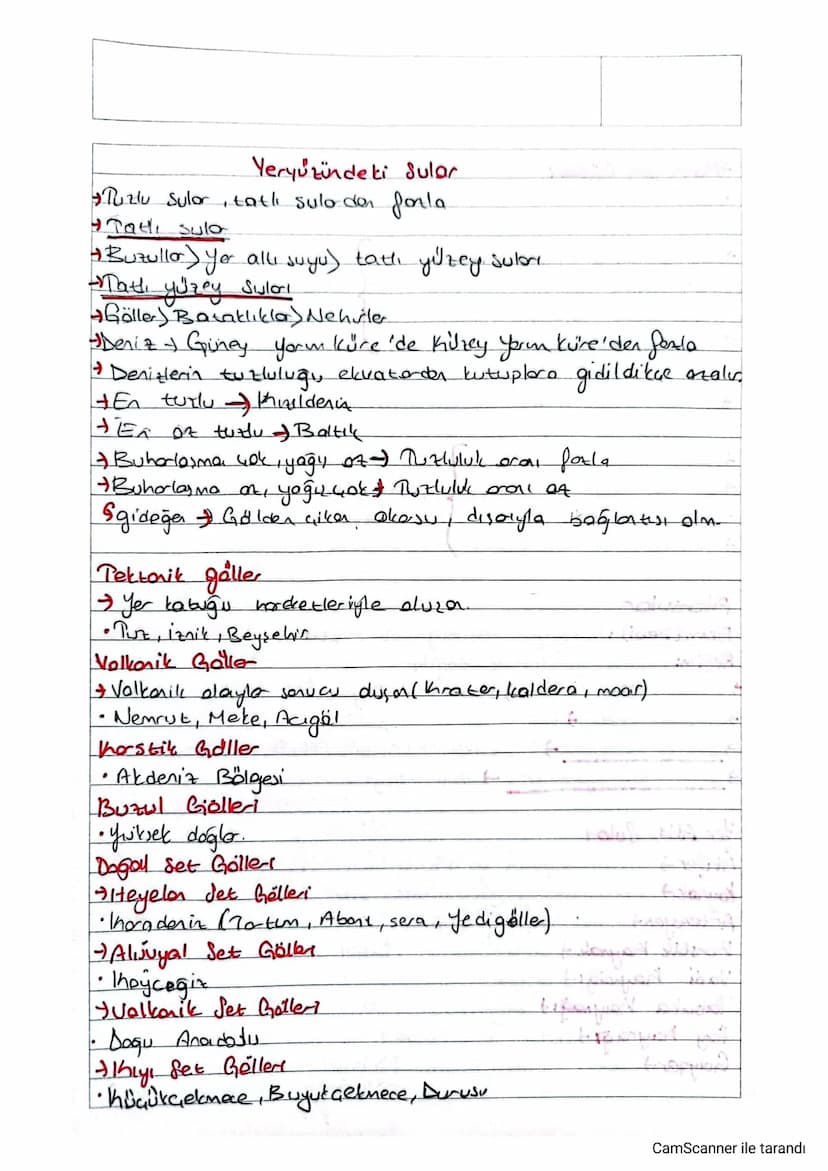 Yeryüzündeki Sular
→Tuzlu sular, tatlı sulardan fazla
→Tatlı sular
→Buzullar>Yer altı suyu> tatlı yüzey suları
→Tatlı yüzey suları
→Göller>Bataklıklar>Nehirler
→Deniz → Güney yarım küre'de Kuzey Yarım küre'den fazla
→Denizlerin tuzluluğu ekvatordan kutuplara gidildikçe azalır
→En tuzlu → Kızıldeniz
→En az tuzlu → Baltık
→Buharlaşma çok, yağış az → Tuzluluk oranı fazla
→Buharlaşma az, yağış çok → Tuzluluk oranı az
Gideğen → Gölden çıkan akarsu, dışarıyla bağlantısı olm.
Tektonik göller
→ Yer kabuğu hareketleriyle oluşan.
• Tuz, İznik, Beyşehir
Volkanik Göller
→Volkanik olaylar sonucu oluşan (krater, kaldera, maar)
• Nemrut, Meke, Acıgöl
Karstik Göller
• Akdeniz Bölgesi
Buzul Gölleri
• Yüksek dağlar.
Doğal Set Gölleri
→Heyelan Set Gölleri
• Karadeniz (Tortum, Abant, sera, Yedigöller)
→Alüvyal Set Gölleri
• Köyceğiz
→Volkanik Set Gölleri
• Doğu Anadolu
→Kıyı Set Gölleri
• Küçükçekmece, Büyükçekmece, Durusu
CamScanner ile tarandı